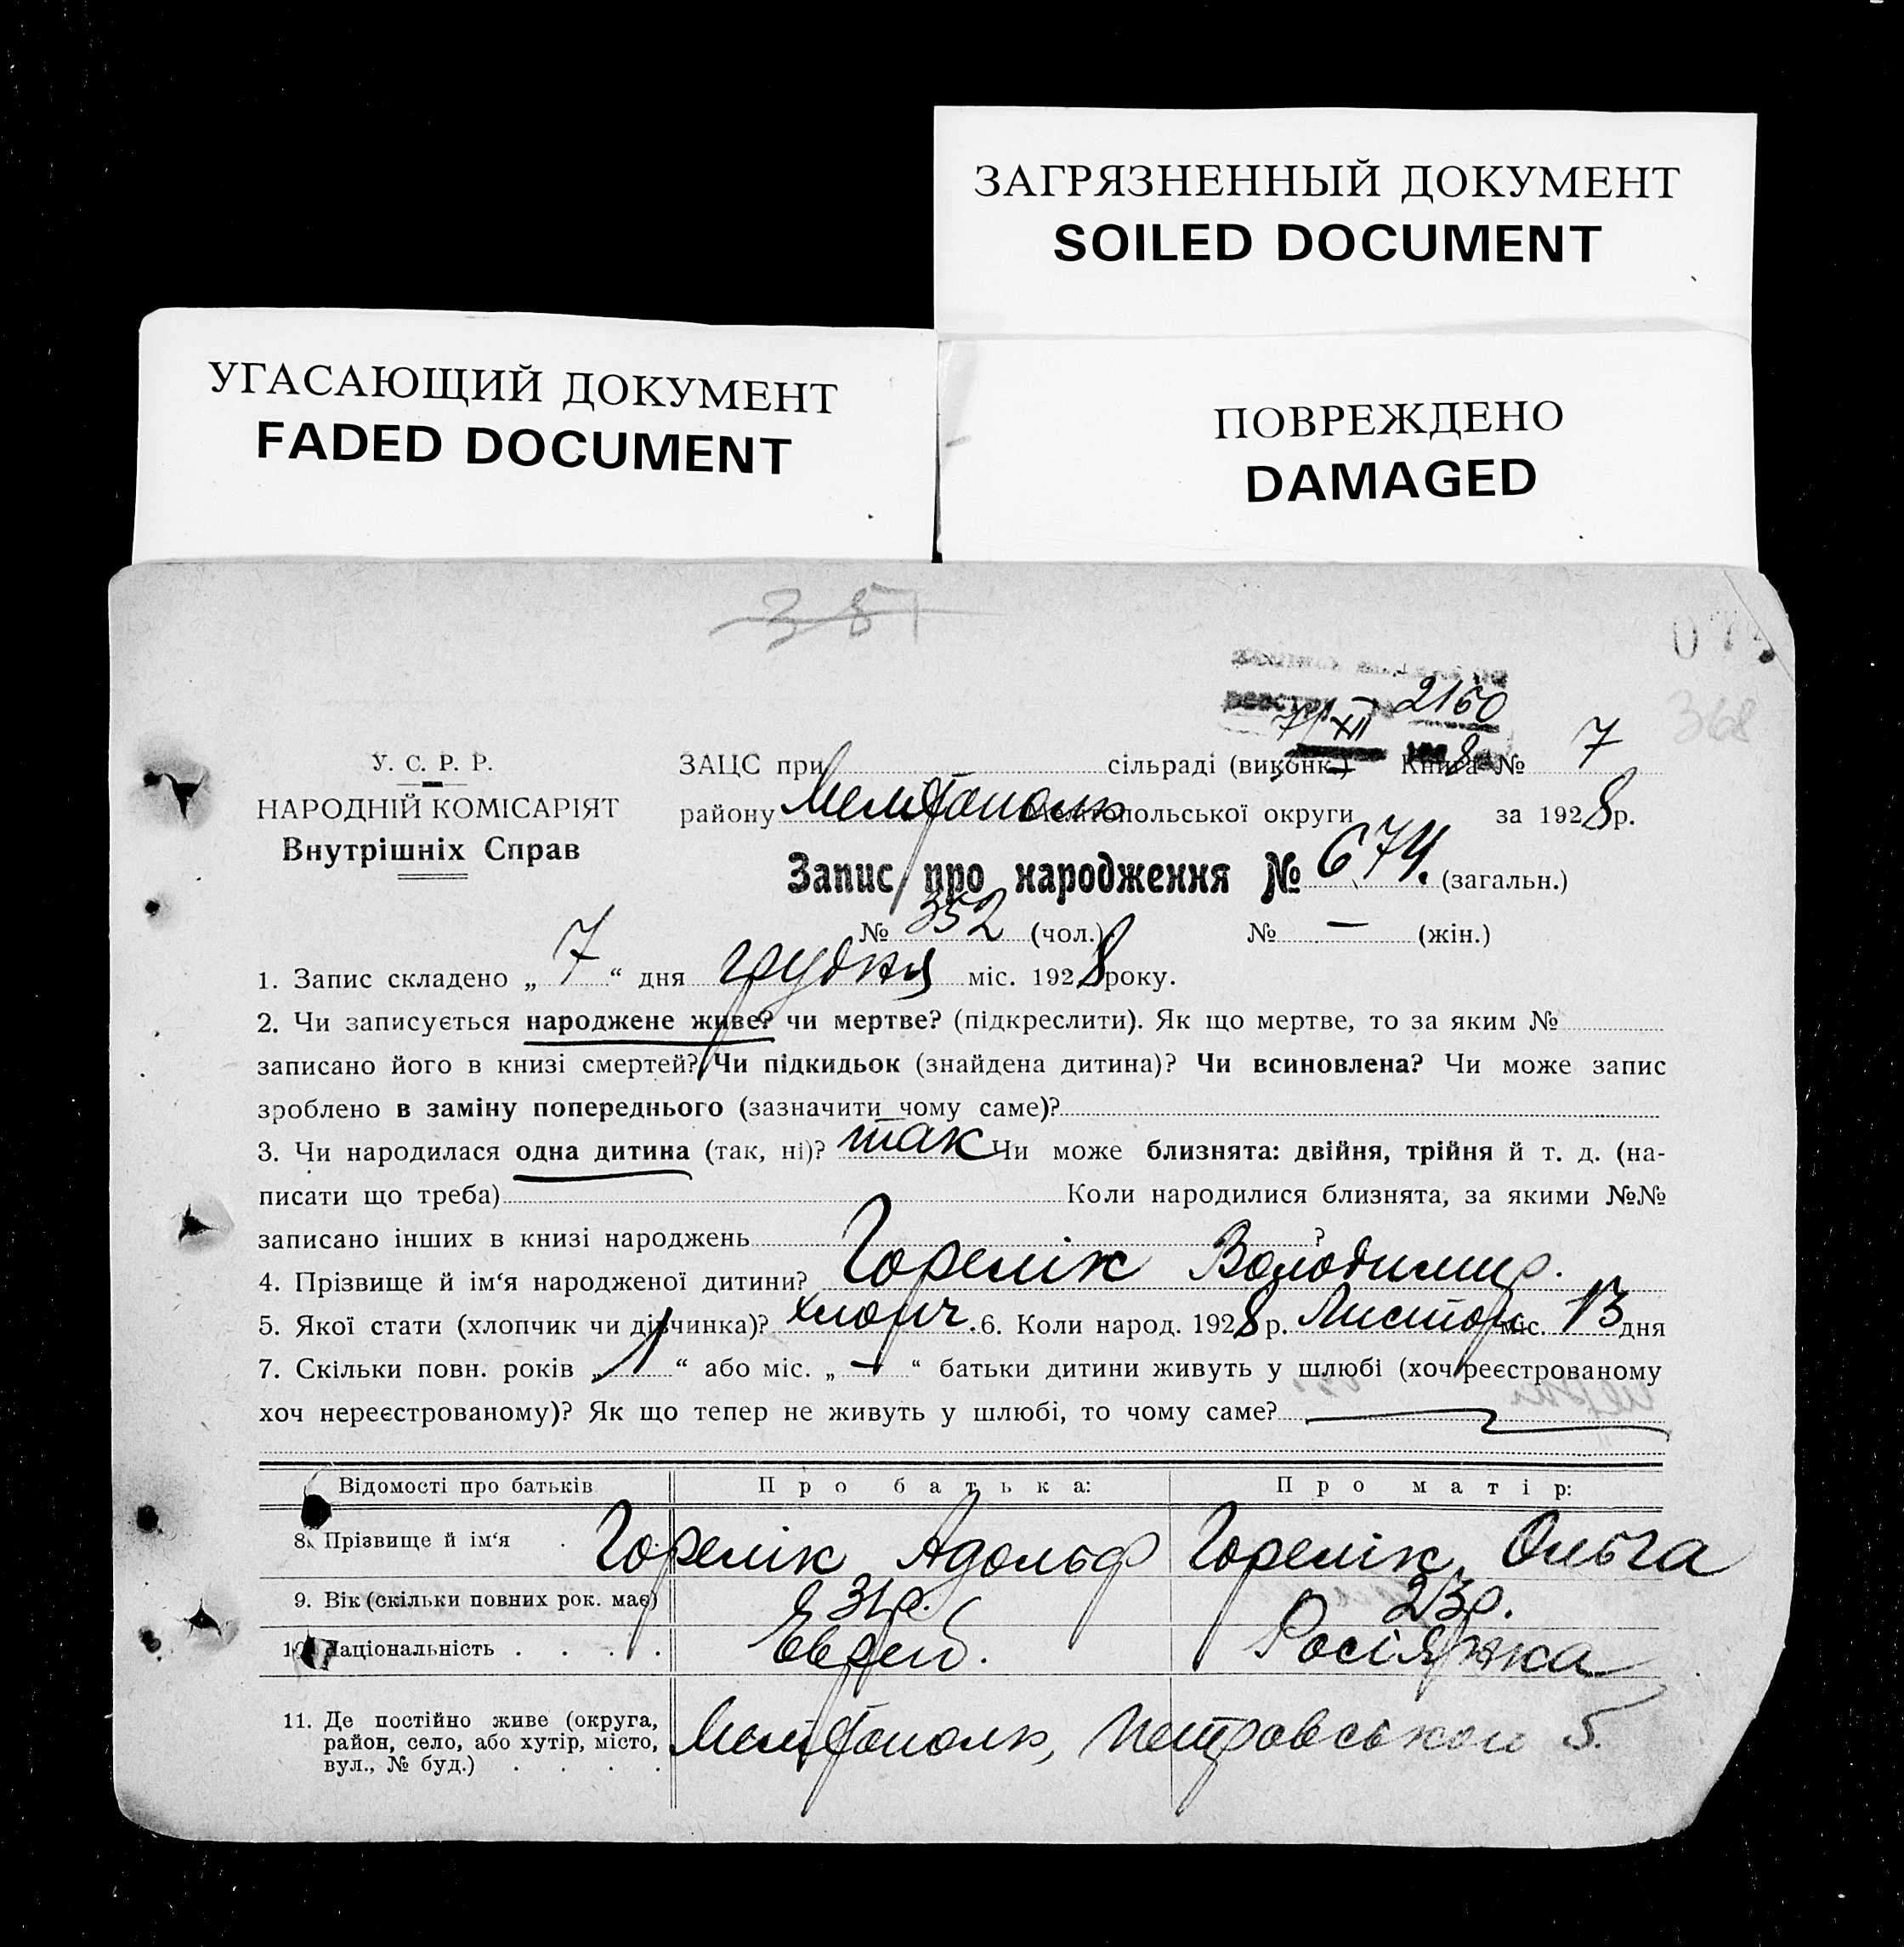 ЗАГРЯЗНЕННЫЙ ДОКУМЕНТ
SOILED DOCUMENT
УГАСАЮЩИЙ ДОКУМЕНТ
FADED DOCUMENT
ПОВРЕЖДЕНО
DAMAGED
351
368
2160
7/XII 8
У. С. Р. Р.
НАРОДНІЙ КОМІСАРІЯТ
Внутрішніх Справ
ЗАЦС при сільраді (виконк.) Книга № 7
району Мелітополь Мелітопольської округи за 1928 р.
Запис про народження № 674. (загальн.)
№ 352 (чол.) № — (жін.)
1. Запис складено „ 7 “ дня грудня міс. 1928 року.
2. Чи записується народжене живе? чи мертве? (підкреслити). Як що мертве, то за яким №
записано його в книзі смертей? Чи підкидьок (знайдена дитина)? Чи всиновлена? Чи може запис
зроблено в заміну попереднього (зазначити чому саме)?
3. Чи народилася одна дитина (так, ні)? так Чи може близнята: двійня, трійня й т. д. (на-
писати що треба) Коли народилися близнята, за якими №№
записано інших в книзі народжень ?
4. Прізвище й ім‘я народженої дитини? Горелік Володимир.
5. Якої стати (хлопчик чи дівчинка)? хлопч. 6. Коли народ. 1928 р. Листоп міс. 13 дня
7. Скільки повн. років „ 1 “ або міс. „ — “ батьки дитини живуть у шлюбі (хоч реєстрованому
хоч нереєстрованому)? Як що тепер не живуть у шлюбі, то чому саме?
Відомості про батьків Про батька: Про матір:
8. Прізвище й ім‘я . Горелік Адольф Горелік Ольга
9. Вік (скільки повних рок. має) 31 р. 23 р.
10. Національність . . . . Еврей. Росіянка
11. Де постійно живе (округа,
район, село, або хутір, місто,
вул., № буд.) . . . .
Мелітополь, Петровської 5.